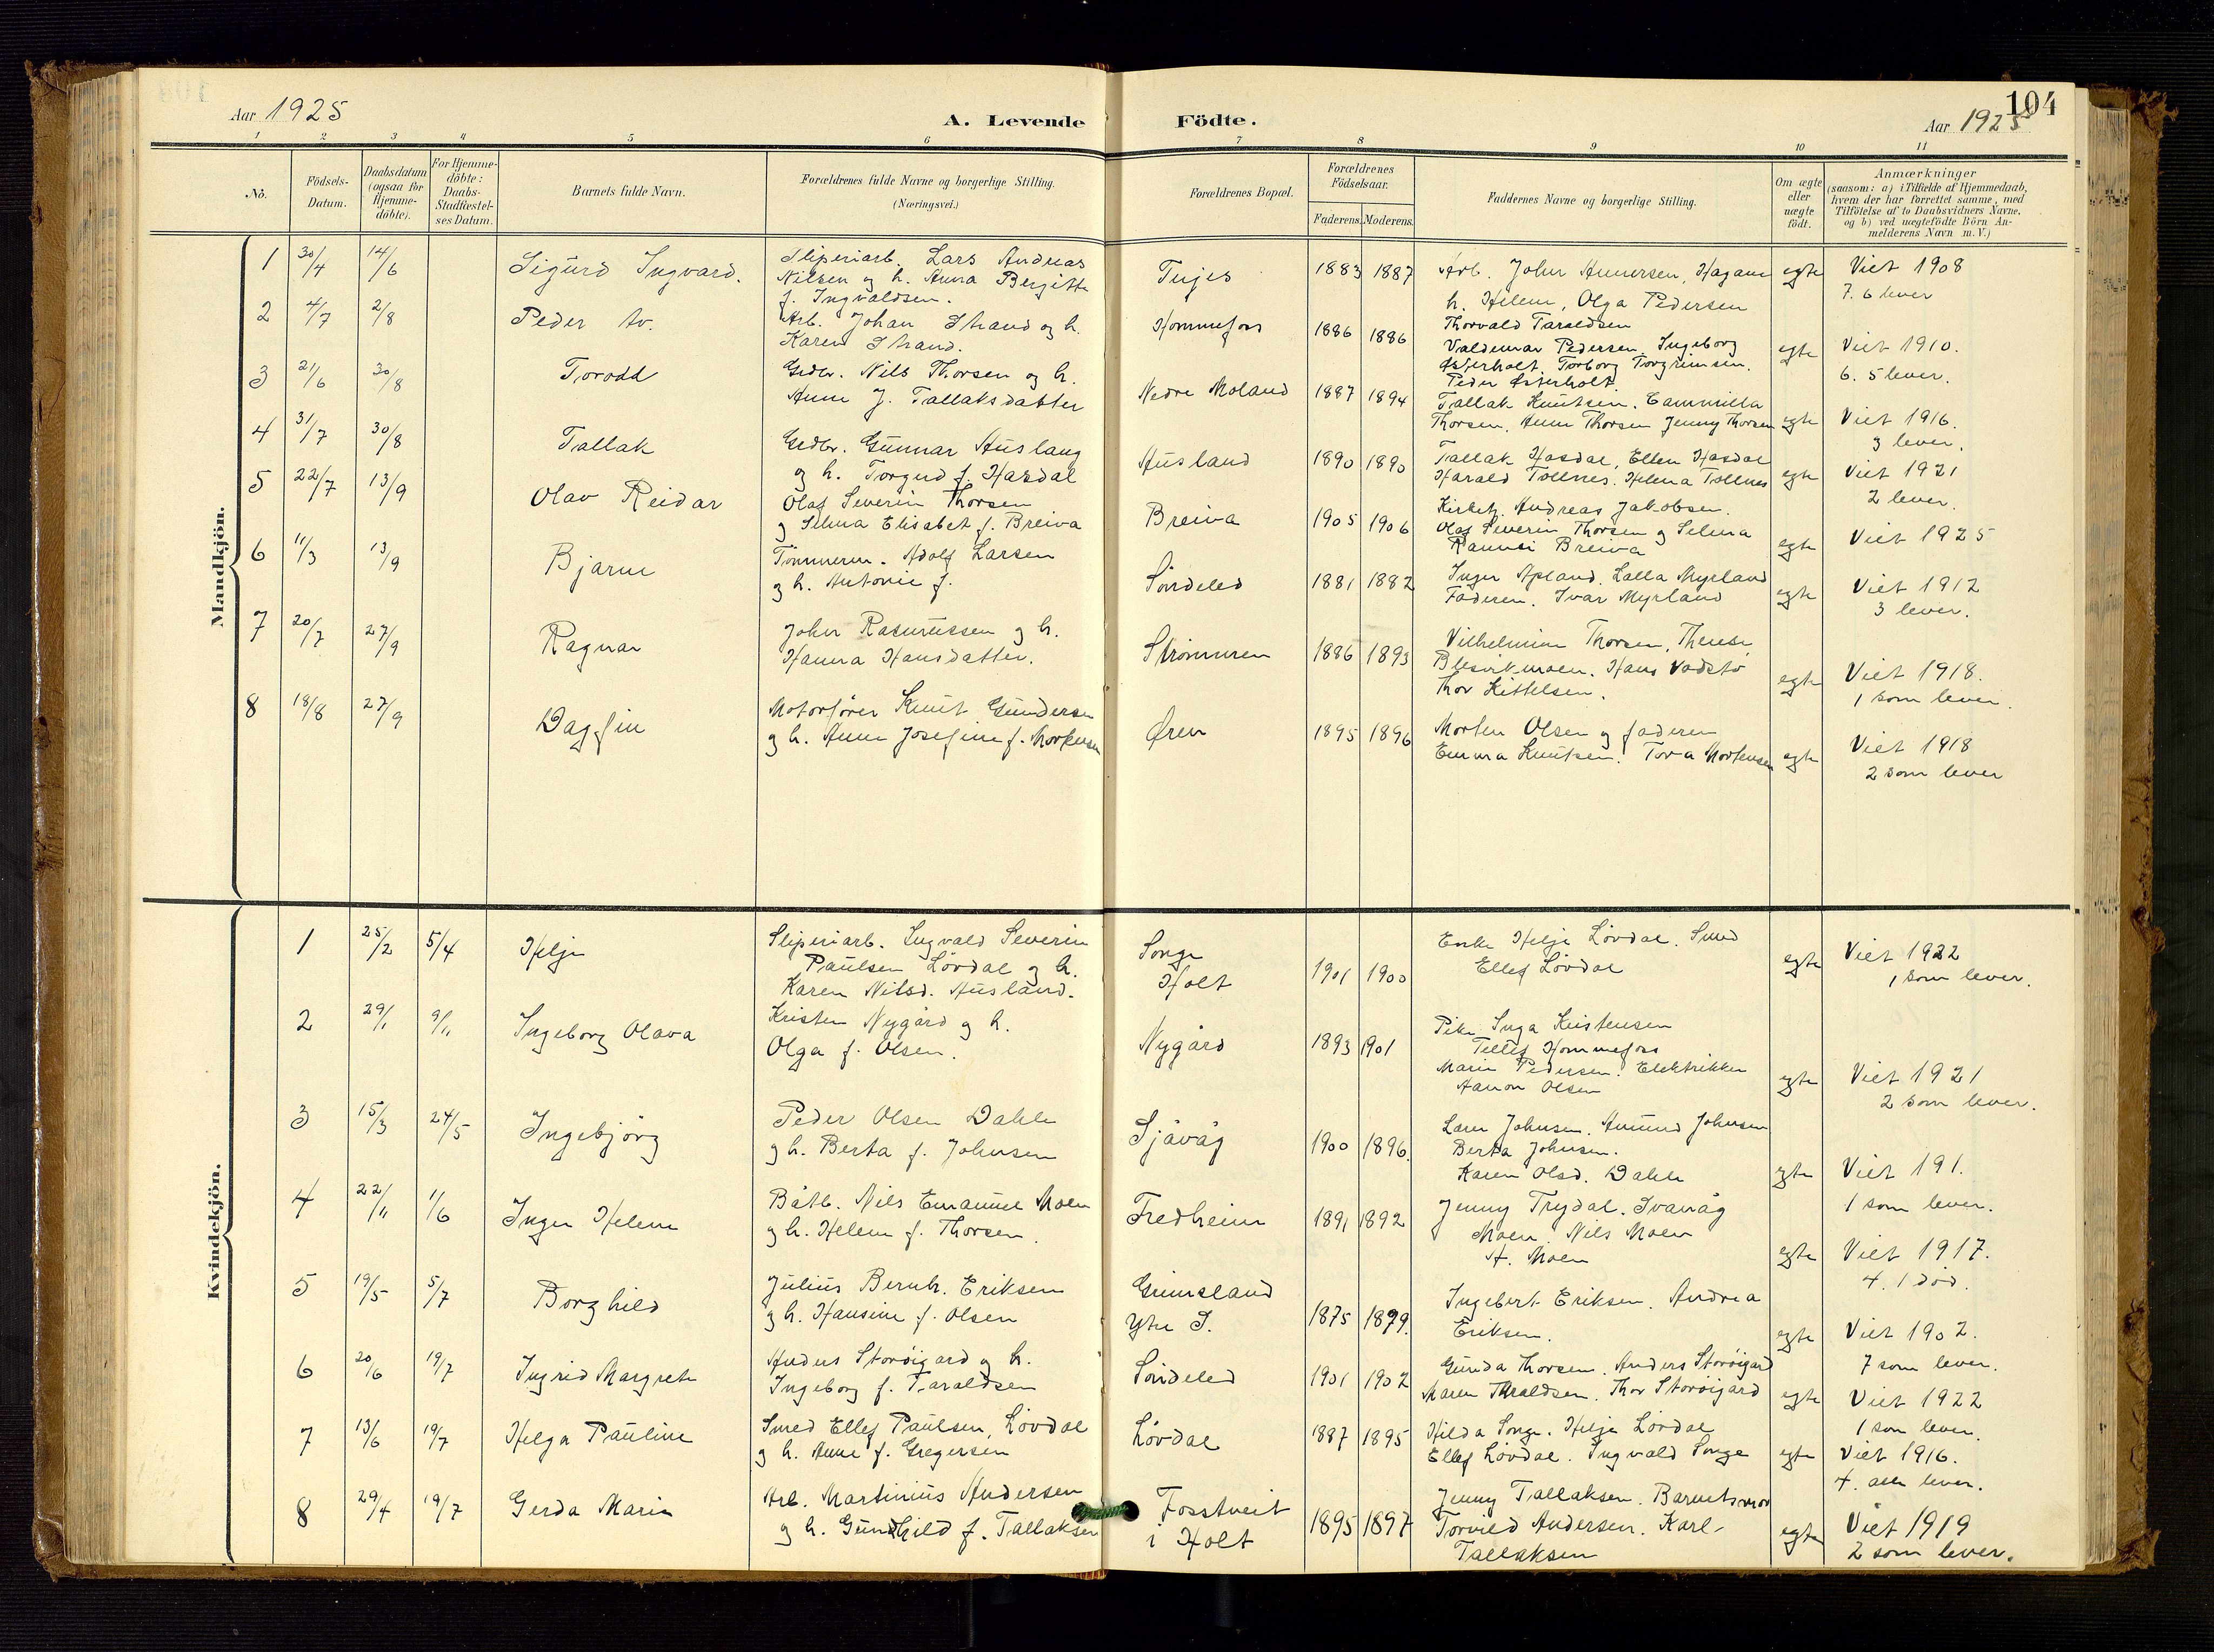 104
Aar 1925
A. Levende Födte.
Aar 1925
1 2 3 4 5 6 7 8 9 10 11
No.
Födsels-Datum.
Daabsdatum (ogsaa for Hjemme-döbte).
For Hjemme-döbte: Daabs-Stadfæstel-ses Datum.
Barnets fulde Navn.
Forældrenes fulde Navne og borgerlige Stilling.
(Næringsvei.)
Forældrenes Bopæl.
Forældrenes Födselsaar.
Faderens. Moderens.
Faddernes Navne og borgerlige Stilling.
Om ægte eller uægte födt.
Anmærkninger
(saasom: a) i Tilfælde af Hjemmedaab, hvem der har forrettet samme, med Tilföielse af to Daabsvidners Navne, og b) ved uægtefödte Börn Anmelderens Navn m. V.)
Mandkjön.
1 30/4 14/6 Sigurd Ingvard. Sliperiarb. Lars Andreas
Nilsen og h. Anna Bergitte
f. Ingvaldsen.
1883 1887 Arb. Johan
h. Helene, Olga Pedersen
Thorvald Taraldsen
egte Viet 1908
7. 6 lever
2 4/7 2/8 Peder Arb. Johan Strand og h.
Karen Strand.
Hommefos 1886 1886 Valdemar Pedersen, Ingeborg
Østerholt. Torborg Torgrimsen.
Peder Østerholt.
egte Viet 1910.
6. 5 lever.
3 21/6 30/8 Torodd Grdbr. Nils Thorsen og h.
Anne J. Tallaksdatter
Nedre Moland 1887 1894 Tallak Knutsen.
Thorsen, Anne Thorsen Jenny Thorsen
egte Viet 1916.
3 lever.
4 31/7 30/8 Tallak Grdbr. Gunnar Ausland
og h. Torgud f. Hasdal
Ausland 1890 1890 Tallak Hasdal, Ellen Hasdal
Harald Tollnes. Helena Tollnes
egte Viet 1921
2 lever.
5 22/7 13/9 Olav Reidar Olaf Severin Thorsen
og Selma Elisabet f. Breiva
Breiva 1905 1906 Kirketj. Andreas Jakobsen.
Olaf Severin Thorsen og Selma
Breiva
egte Viet 1925
6 11/3 13/9 Bjarne Tømmerm. Adolf Larsen
og h. Antonie f.
Søndeled 1881 1882 Inger Apland. Lalla Myrland
Faderen. Ivar Myrland
egte Viet 1912
3 lever.
7 20/7 27/9 Ragnar Johan Rasmussen og h.
Hanna Hansdatter.
Strømmen 1886 1893 Vilhelmine Thorsen, Therese
Blesvikmoen. Hans Vadstø
Thor Kittelsen.
egte Viet 1918.
1 som lever.
8 18/8 27/9 Dagfin Motorfører Knut Gundersen
og h. Anne Josefine f. Mortensen
Øren 1895 1896 Morten Olsen og faderen
Emma Knutsen. Tora Mortensen
egte Viet 1918
2 som lever
Kvindekjön.
1 25/2 5/4 Helje Sliperiarb. Ingvald Severin
Paulsen Løvdal og h.
Karen Nilsd. Ausland.
Songe
Holt
1901 1900 Enke Helje Løvdal. Smed
Ellef Løvdal
egte Viet 1922
1 som lever.
2 29/1 9/11 Ingeborg Olava Kristen Nygård og h.
Olga f. Olsen.
Nygård 1893 1901 Pike Inga Kristensen
Tellef Hommefos
Marie Pedersen. Elektriker
Aanon Olsen
egte Viet 1921
2 som lever.
3 15/3 24/5 Ingebjörg Peder Olsen Dahle
og h. Berta f. Johnsen
Sjåvåg 1900 1896. Johnsen. Amund Johnsen
Berta Johnsen.
Karen Olsd. Dahle
egte Viet 191.
1 som lever.
4 22/11 1/6 Inger Helene Båtb. Nils Emanuel Moen
og h. Helene f. Thorsen.
Fredheim 1891 1892 Jenny Trydal.
Moen. Nils Moen
A. Moen
egte Viet 1917.
4. 1 død.
5 19/5 5/7 Borghild Julius Bernh. Eriksen
og h. Hansine f. Olsen
Grimsland
Ytre S.
1875 1879. Ingebert Eriksen. Andrea
Eriksen.
egte Viet 1902.
7 som lever.
6 20/6 19/7 Ingrid Margrete Anders Storöigard og h.
Ingeborg f. Taraldsen
Søndeled 1901 1902 Gunda Thorsen. Anders Storöigard
Maren Taraldsen. Thor Storöigard
egte Viet 1922
1 som lever.
7 13/6 19/7 Helga Pauline Smed Ellef Paulsen, Løvdal
og h. Anne f. Gregersen
Løvdal 1887 1895 Hilda Songe. Helje Løvdal
Ellef Løvdal. Ingvald Songe
egte Viet 1916.
4. alle lever.
8 29/4 19/7 Gerda Marie Arb. Martinius Andersen
og h. Gunhild f. Tallaksen
Fosstveit
i Holt
1895 1897 Jenny Tallaksen. Barnets mor
Torvild Andersen. Karl
Tallaksen
egte Viet 1919
2 som lever.